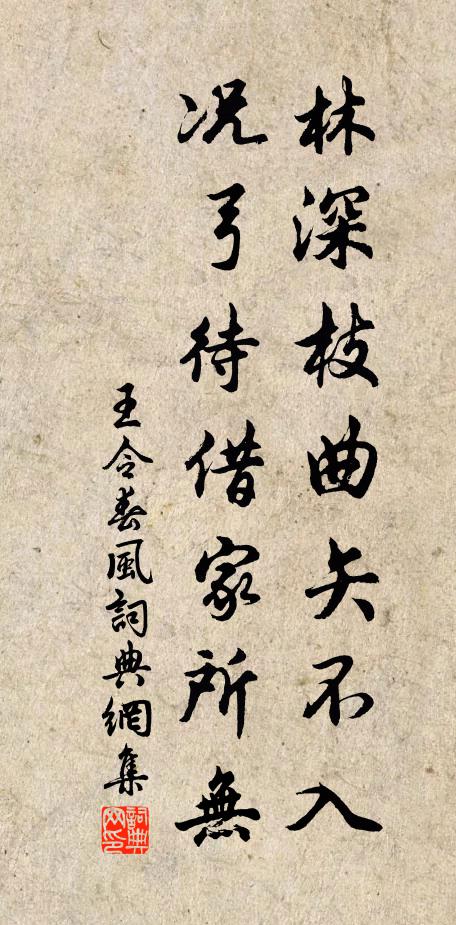 林深枝曲矢不入
况弓待借家所無
王令春風詞典網集
詞典網印